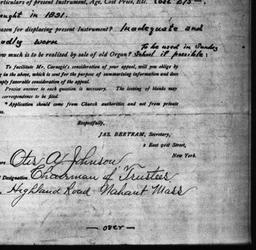 particulars of present Instrument, Age, Cost Price, Etc. Cost 875—
bought in 1891.
Reason for displacing present Instrument? Inadequate and
badly worn
To be used in Sunday
How much is to be realised by sale of old Organ? School if possible.
To facilitate Mr. Carnegie's consideration of your appeal, will you oblige by
in the above, which is sent for the purpose of summarising information and does
imply favorable consideration of the appeal.
Precise answer to each question is necessary. The leaving of blanks may
correspondence to be filed.
*Application should come from Church authorities and not from private
Respectfully,
JAS. BERTRAM, Secretary,
2 East 91st Street,
New York.
Otis A. Johnson
Designation Chairman of Trustees
Highland Road Nahant Mass
— over —